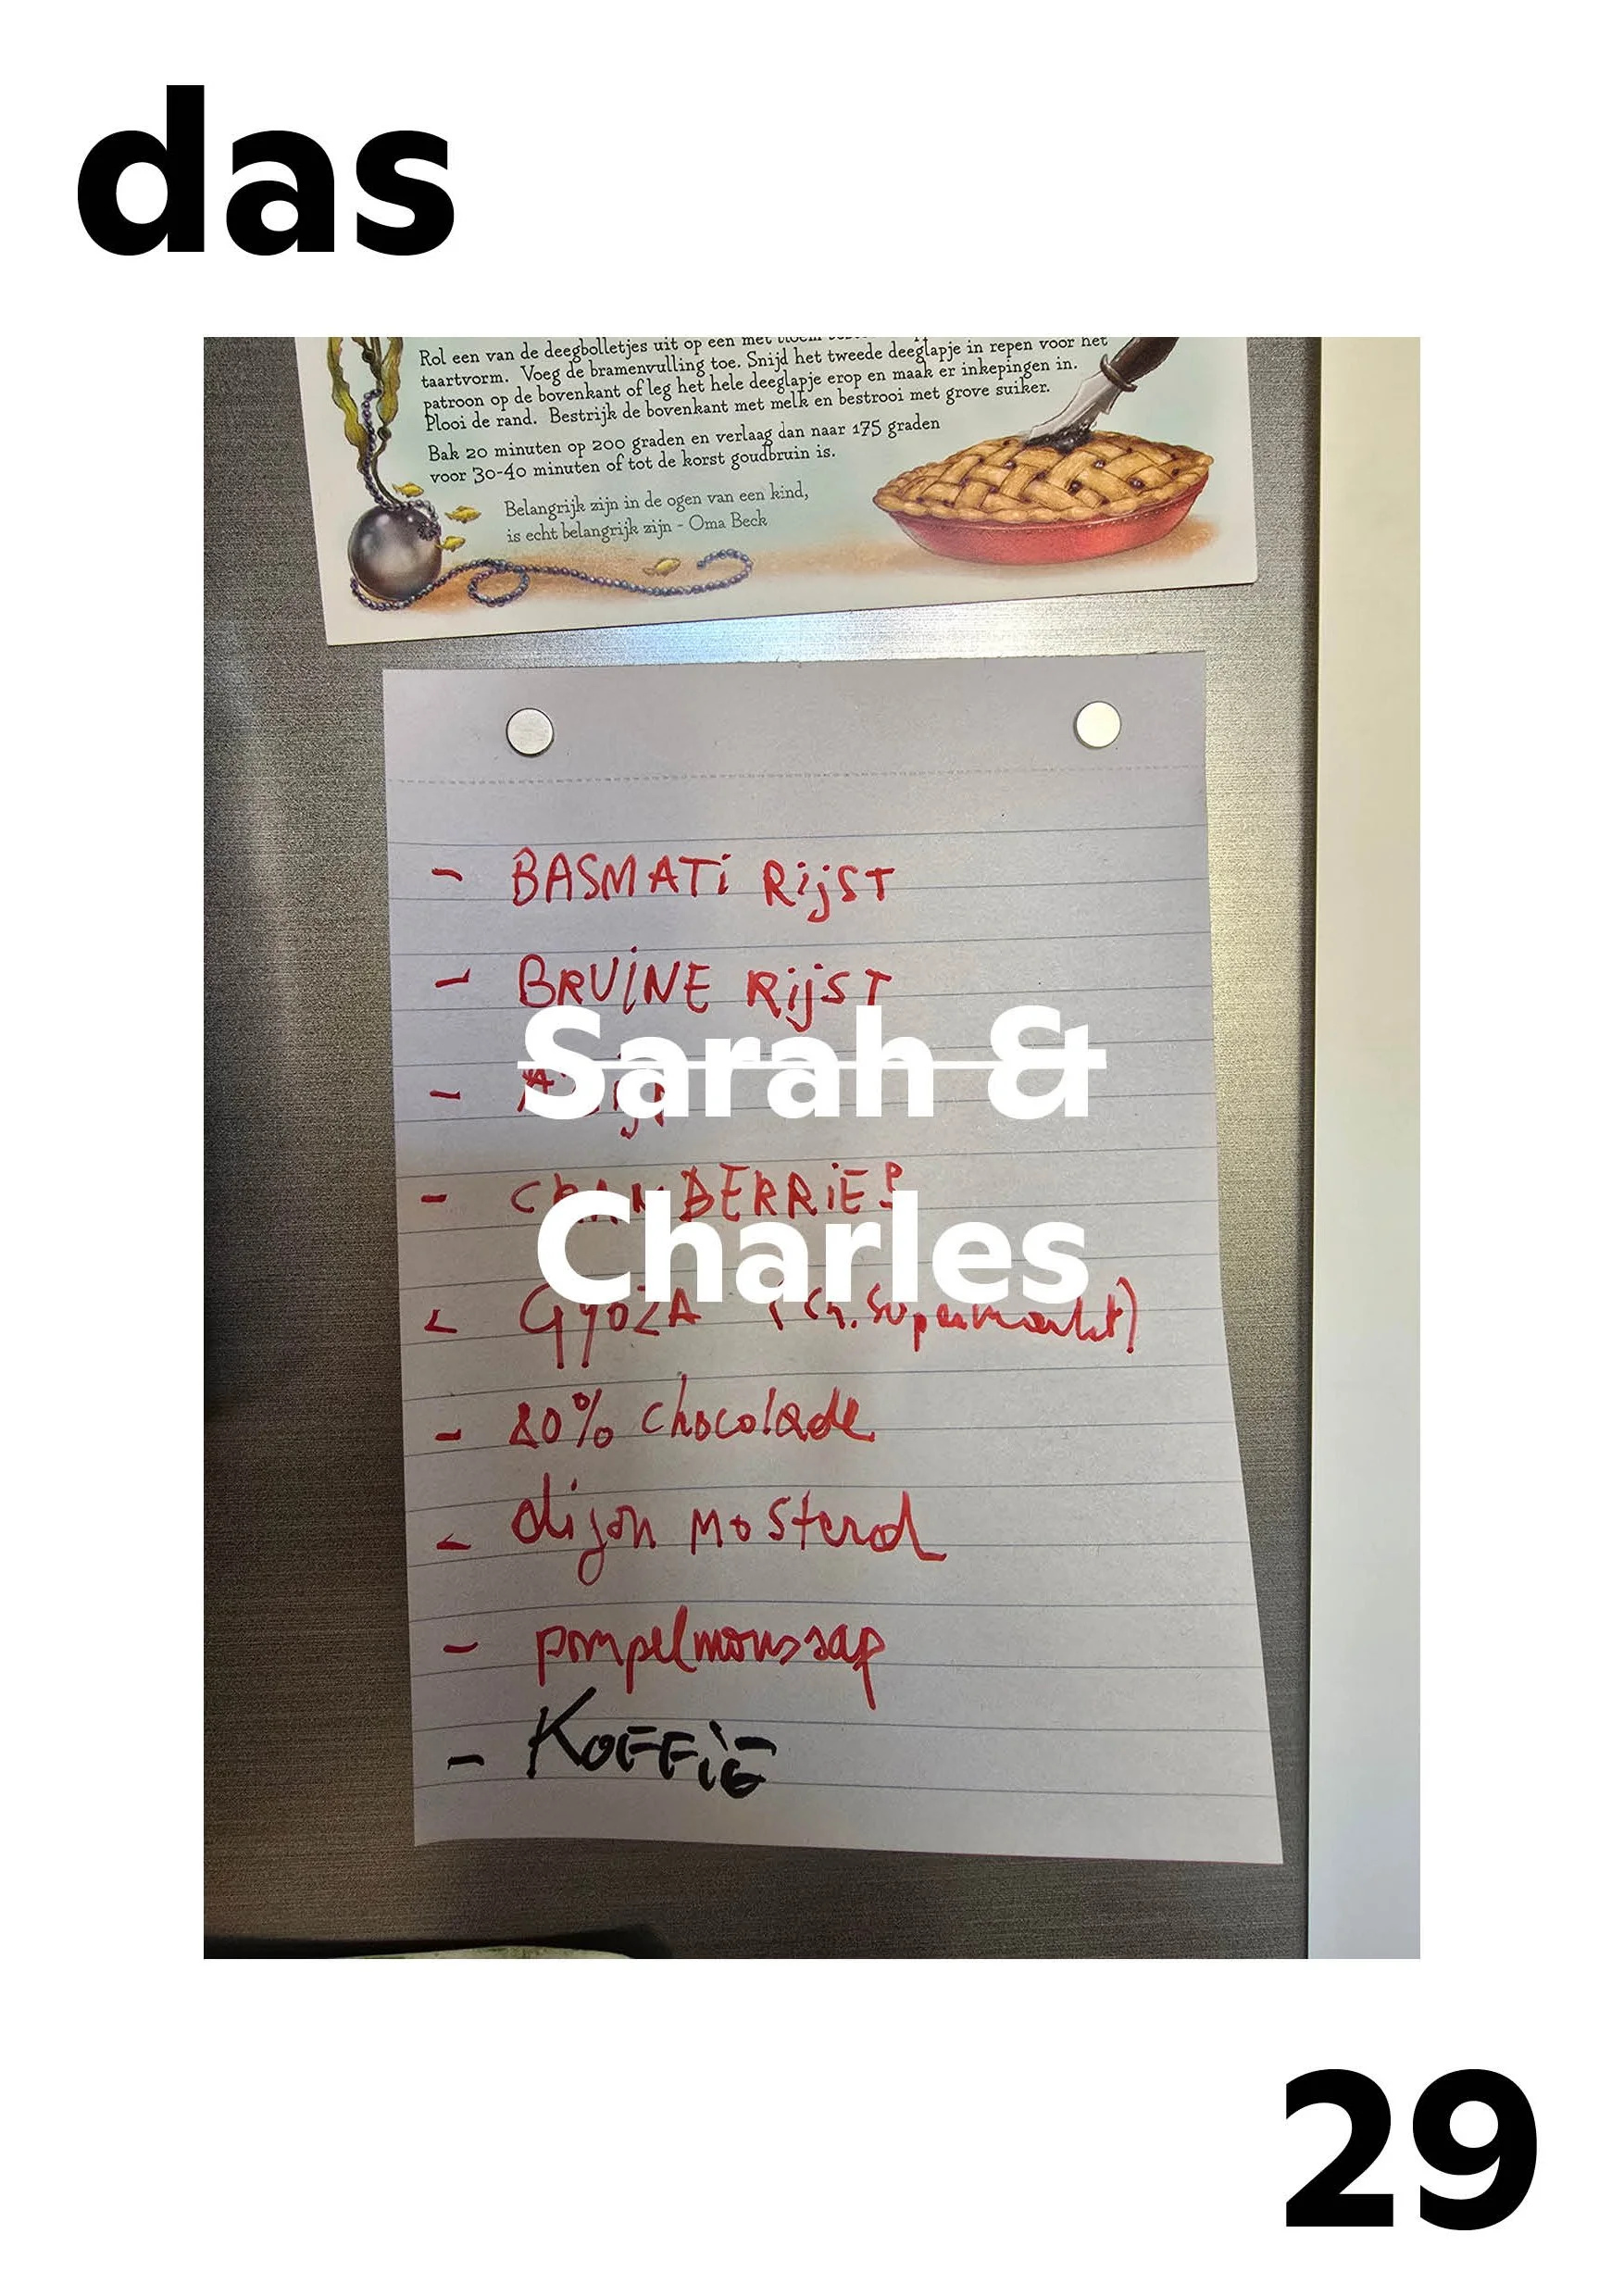 das
Rol een van de deegbolletjes uit op een met
taartvorm. Voeg de bramenvulling toe. Snijd het tweede deeglapje in repen voor het
patroon op de bovenkant of leg het hele deeglapje erop en maak er inkepingen in.
Plooi de rand. Bestrijk de bovenkant met melk en bestrooi met grove suiker.
Bak 20 minuten op 200 graden en verlaag dan naar 175 graden
voor 30-40 minuten of tot de korst goudbruin is.
Belangrijk zijn in de ogen van een kind,
is echt belangrijk zijn - Oma Beck
- BASMATi RijST
- BRUiNE RijST
Sarah &
- CRANBERRiES
Charles
- GYOZA (Ch. Supermarkt)
- 80% chocolade
- dijon Mosterd
- pompelmoussap
- KOFFiE
29